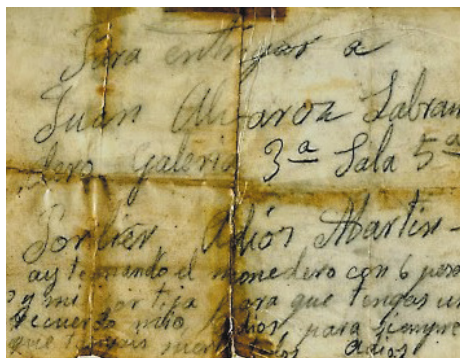 Para entregar a
Juan Alvaroz Labran
dero Galeria 3ª Sala 5ª
Porlier Adios Martin-
ay te mando el monedero con 6 pese
y mi sortija para que tengas un
recuerdo mio Adios para siempre
que tengais Adios